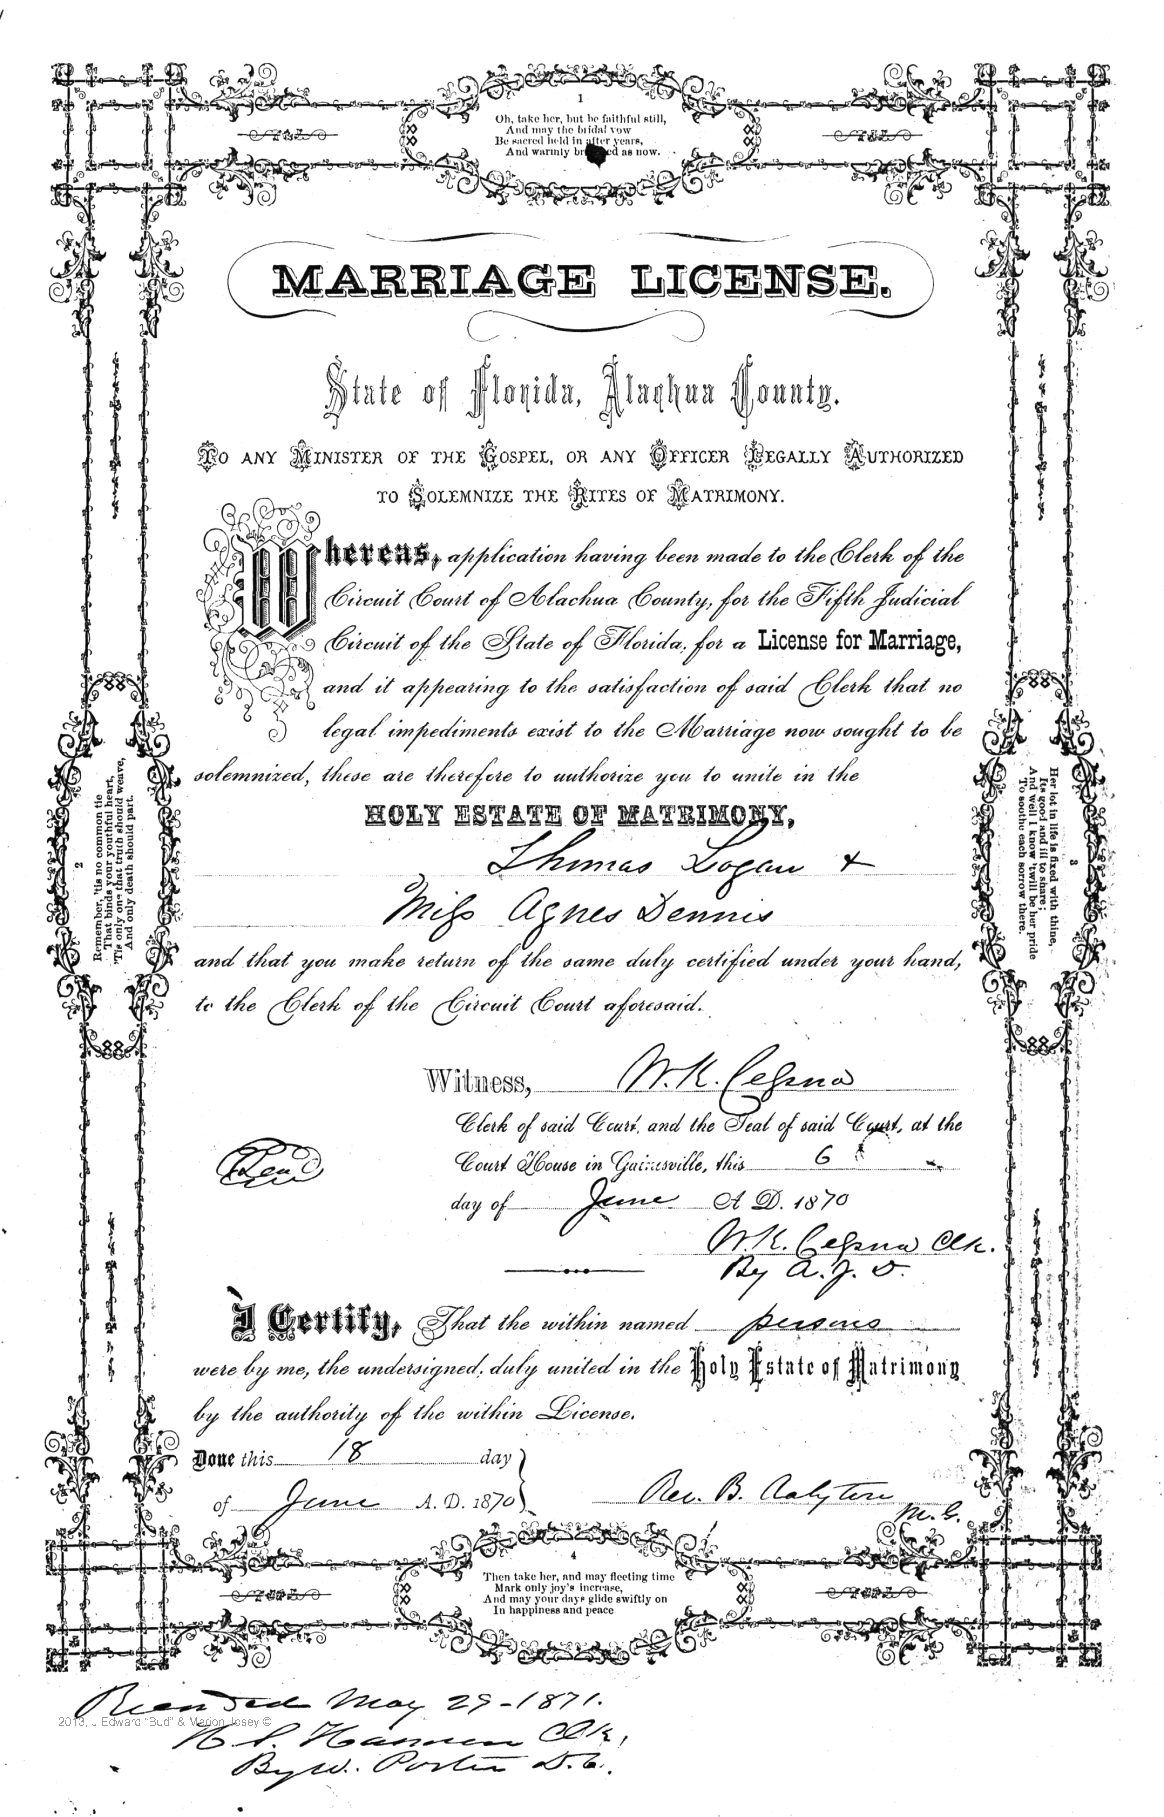 1
Oh, take her, but be faithful still,
And may the bridal vow
Be sacred held in after years,
And warmly as now.
MARRIAGE LICENSE.
State of Florida, Alachua County.
TO ANY MINISTER OF THE GOSPEL, OR ANY OFFICER LEGALLY AUTHORIZED
TO SOLEMNIZE THE RITES OF MATRIMONY.
Whereas, application having been made to the Clerk of the
Circuit Court of Alachua County, for the Fifth Judicial
Circuit of the State of Florida, for a License for Marriage,
and it appearing to the satisfaction of said Clerk that no
legal impediments exist to the Marriage now sought to be
solemnized, these are therefore to authorize you to unite in the
HOLY ESTATE OF MATRIMONY,
Thomas Logan +
Miss Agnes Dennis
and that you make return of the same duly certified under your hand,
to the Clerk of the Circuit Court aforesaid.
2
Remember, 'tis no common tie
That binds your youthful heart,
'Tis only one that truth should weave,
And only death should part.
3
Her lot in life is fixed with thine,
Its good and ill to share;
And well I know 'twill be her pride
To soothe each sorrow there.
Witness, W. K. Cessna
Clerk of said Court, and the Seal of said Court, at the
Court House in Gainesville, this 6
day of June A. D. 1870
Seal
W. K. Cessna Clk.
By A. J. D.
I Certify, That the within named persons
were by me, the undersigned, duly united in the Holy Estate of Matrimony
by the authority of the within License.
Done this 18 day
of June A. D. 1870
Rev. B.
M. G.
4
Then take her, and may fleeting time
Mark only joy's increase,
And may your days glide swiftly on
In happiness and peace
Recorded May 29-1871.
2013, J Edward "Bud" & Marion Josey ©
Clk,
By W. Porter D. C.